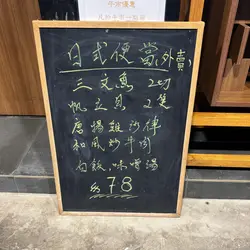 日式便當(外賣)
三文魚 2切
帆立貝 2隻
唐揚雞沙律
和風炒牛肉
白飯,味噌湯
$78